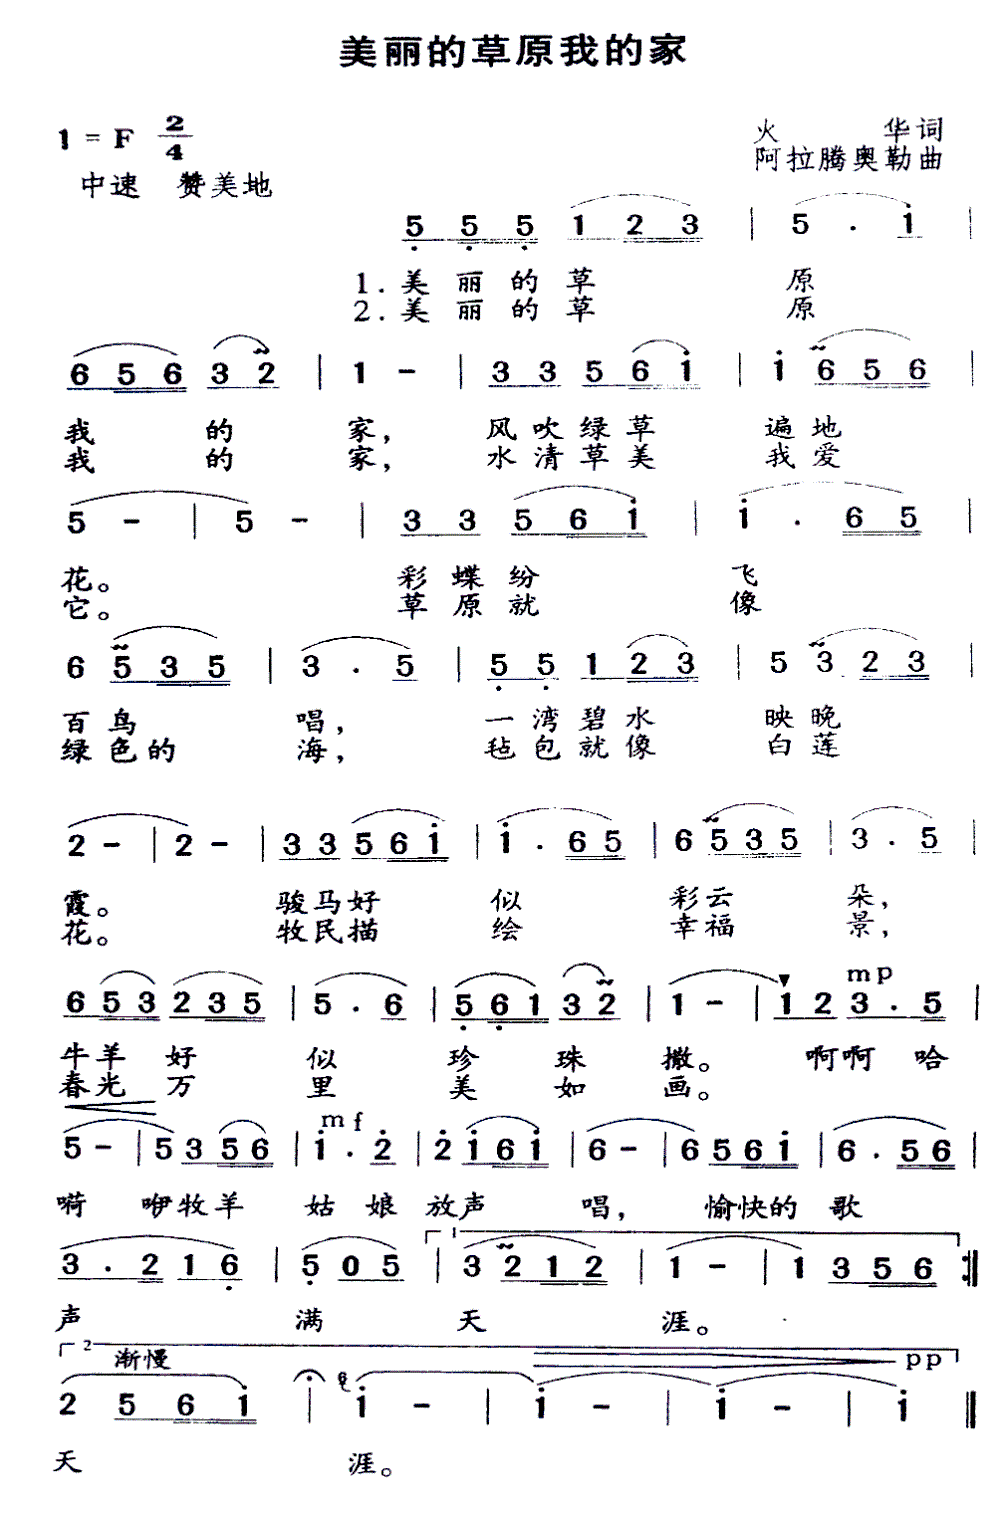 美丽的草原我的家
1 = F 2/4
火 华词
中速 赞美地
阿拉腾奥勒曲
5 5 5 1 2 3 | 5 . i |
1.美丽的草 原
2.美丽的草 原
6 5 6 3 2 | 1 - | 3 3 5 6 i | i 6 5 6 |
我 的 家， 风吹绿草 遍地
我 的 家， 水清草美 我爱
5 - | 5 - | 3 3 5 6 i | i . 6 5 |
花。 彩蝶纷 飞
它。 草原就 像
6 5 3 5 | 3 . 5 | 5 5 1 2 3 | 5 3 2 3 |
百鸟 唱， 一湾碧水 映晚
绿色的 海， 毡包就像 白莲
2 - | 2 - | 3 3 5 6 i | i . 6 5 | 6 5 3 5 | 3 . 5 |
霞。 骏马好 似 彩云 朵，
花。 牧民描 绘 幸福 景，
mp
6 5 3 2 3 5 | 5 . 6 | 5 6 1 3 2 | 1 - | 1 2 3 . 5 |
牛羊 好 似 珍 珠 撒。 啊啊 哈
春光 万 里 美 如 画。
mf
5 - | 5 3 5 6 | i . 2 | 2 i 6 i | 6 - | 6 5 6 i | 6 . 5 6 |
嗬 咿牧羊 姑 娘 放声 唱， 愉快的 歌
1
3 . 2 1 6 | 5 0 5 | 3 2 1 2 | 1 - | 1 3 5 6 :‖
声 满 天 涯。
2 渐慢 pp
2 5 6 i | i - | i - | i - | i ‖
天 涯。